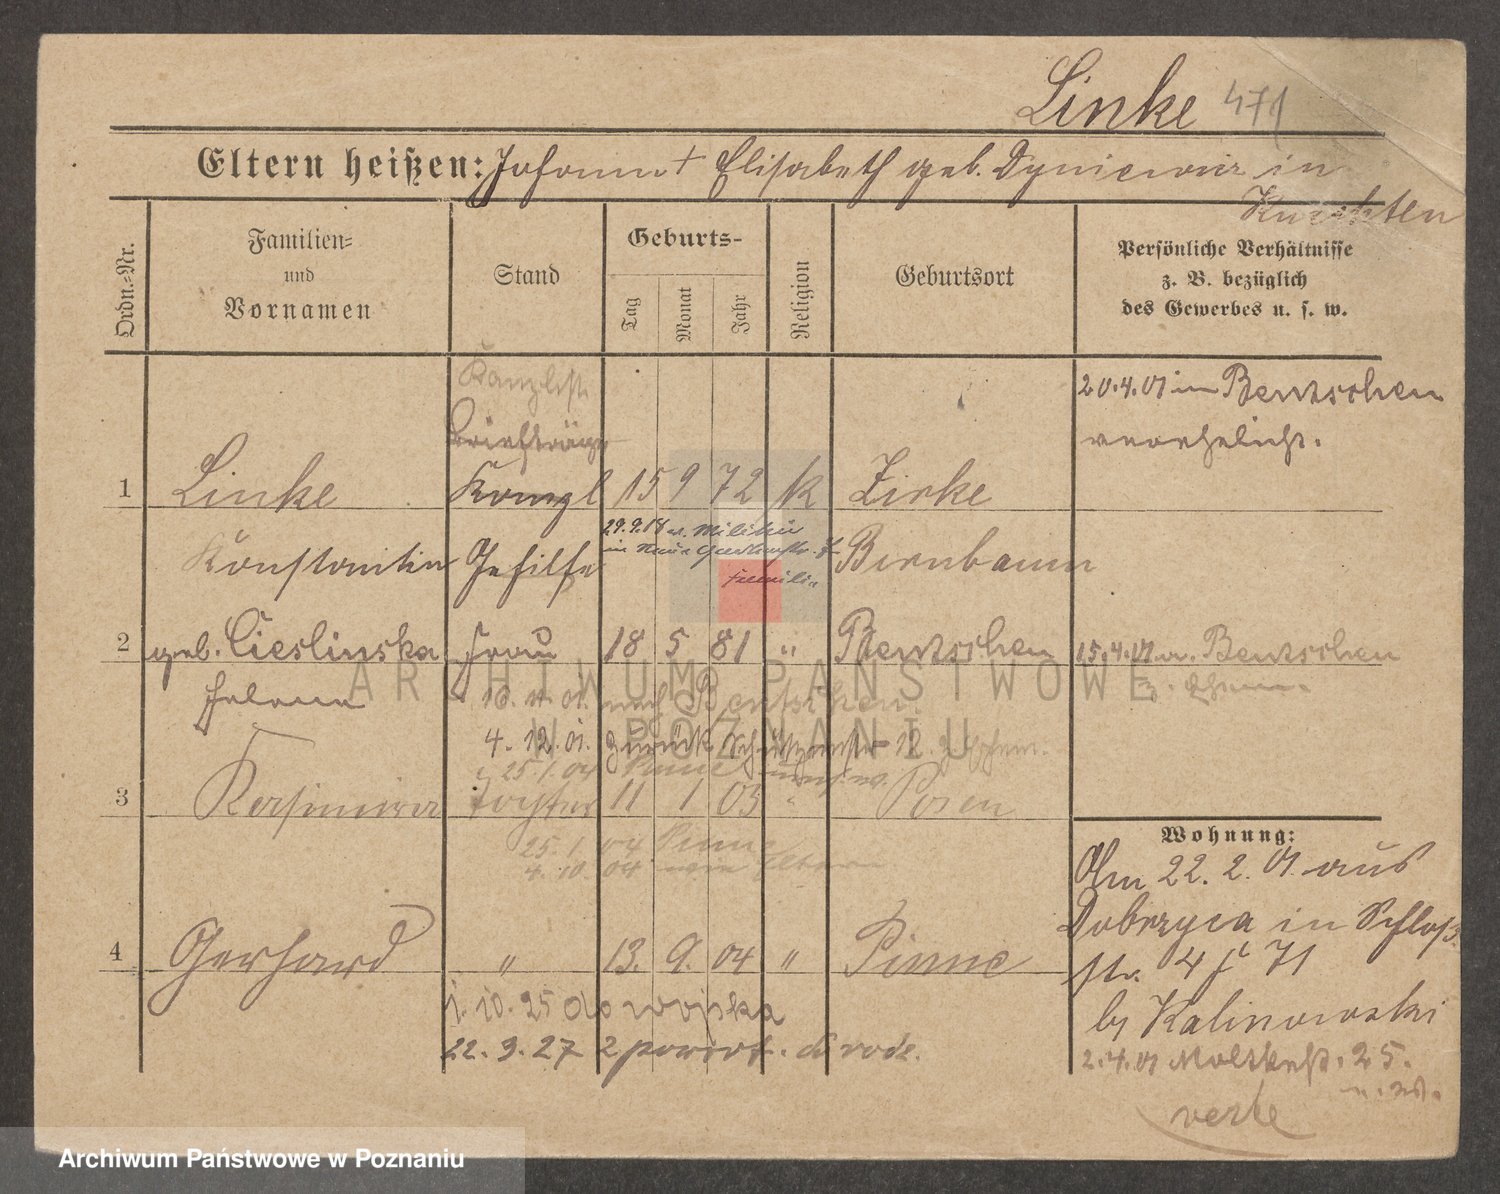 Linke 471
Eltern heißen: Johann † Elisabeth geb. Dyniewicz in
Ordn.-Nr.
Familien-
und
Vornamen
Stand
Geburts-
Tag
Monat
Jahr
Religion
Geburtsort
Persönliche Verhältnisse
z. B. bezüglich
des Gewerbes u. s. w.
Kanzlist
Briefträger
20.4.01 in Bentschen
verehelicht.
1 Linke Kanzl 15 9 72 k Zirke
29.9.18 v. Militär
Konstantin Gehilfe Birnbaum
Familie
2 geb. Cieslinska Frau 18 5 81 " Bentschen 15.4.01 v. Bentschen
Helene 16. 4. 01. nach Bentschen
z. Ehem.
4. 12. 01. zurück Schützenstr 12 z. Ehem.
25.1.04 Pinne
3 Kasimira Tochter 11 1 03 " Posen
25. 1. 04 Pinne
4. 10. 04 wie Eltern
Wohnung:
Am 22. 2. 01 aus
Dobrzyca in Schloß
4 Gerhard " 13. 9. 04 " Pinne
str. 4 71
by Kalinowski
1. 10. 25 do wojska
22. 3. 27 z powrot. do rodz.
2.4.01 Moltkestr. 25.
verte
ARCHIWUM PAŃSTWOWE
W POZNANIU
Archiwum Państwowe w Poznaniu